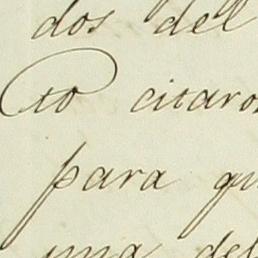 dos del
to citaron
para qu
una del